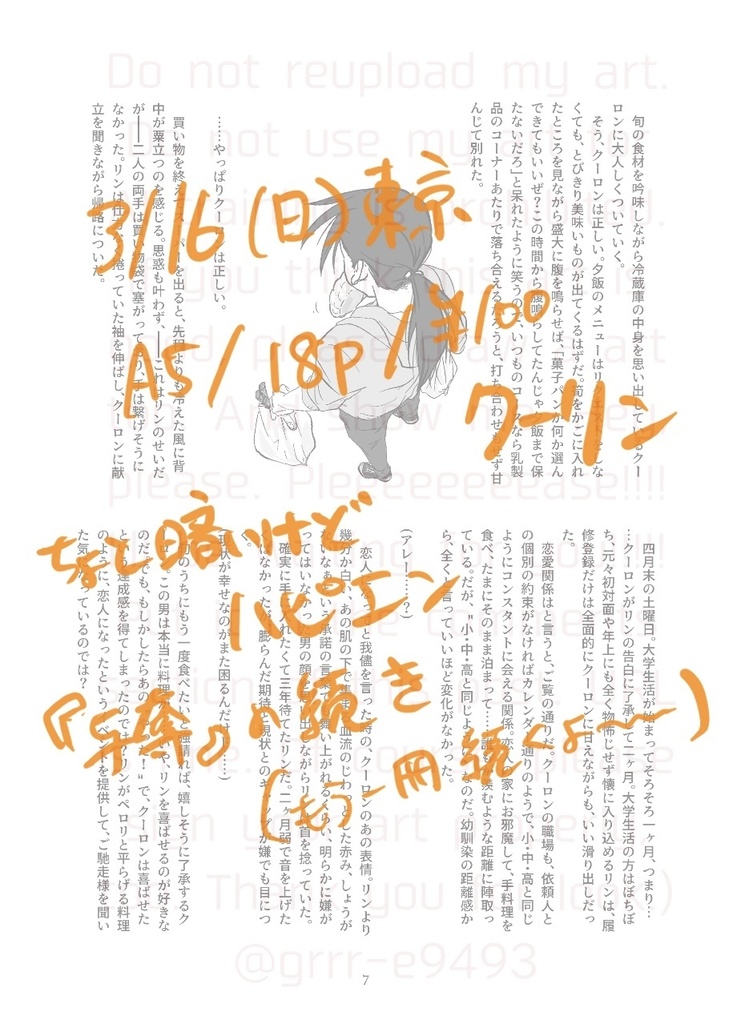 旬の食材を吟味しながら冷蔵庫の中身を思い出しているクー
ロンに大人しくついていく。
そう、クーロンは正しい。夕飯のメニューはリクエストをしな
くても、とびきり美味いものが出てくるはずだ。筍をかごに入れ
たところを見ながら盛大に腹を鳴らせば、「菓子パンか何か選ん
できてもいいぜ?この時間から腹鳴らしてたんじゃ夕飯まで保
たないだろ」と呆れたように笑うので、いつものコースなら乳製
品のコーナーあたりで落ち合えるだろうと、打ち合わせもせず甘
んじて別れた。
……やっぱりクーロンは正しい。
買い物を終えてスーパーを出ると、先程よりも冷えた風に背
中が粟立つのを感じる。思惑も叶わず、――これはリンのせいだ
が――二人の両手は買い物袋で塞がっており、手は繋げそうに
なかった。リンは仕 捲っていた袖を伸ばし、クーロンに献
立を聞きながら帰路についた。
四月末の土曜日。大学生活が始まってそろそろ一ヶ月、つまり…
…クーロンがリンの告白に了承して二ヶ月。大学生活の方はぼちぼ
ち、元々初対面や年上にも全く物怖じせず懐に入り込めるリンは、履
修登録だけは全面的にクーロンに甘えながらも、いい滑り出しだっ
た。
恋愛関係はと言うと、ご覧の通りだ。クーロンの職場も、依頼人と
の個別の約束がなければカレンダー通りのようで、小・中・高と同じ
ようにコンスタントに会える関係。恋人の家にお邪魔して、手料理を
食べ、たまにそのまま泊まって……誰もが羨むような距離に陣取っ
ている。だが、"小・中・高と同じよ なのだ。幼馴染の距離感か
ら、全くと言っていいほど変化がなかった。
(アレー……?)
恋人に と我儘を言った時の、クーロンのあの表情。リンより
幾分か白い、あの肌の下で 血流のじわっとした赤み、しょうが
ないなぁという承諾の言葉 舞い上がれるくらい、明らかに嫌が
ってはいなかった男の顔 出しながらリンは首を捻っていた。
確実に手に入れたくて三年待てたリンだ。二ヶ月弱で音を上げた
はなかったが、膨らんだ期待と現状とのギャップが嫌でも目につ
く。
(現状が幸せなのがまた困るんだけど……)
旬のうちにもう一度食べたいと強請れば、嬉しそうに了承するク
この男は本当に料理が いやリンを喜ばせるのが好きな
のだ。でも、もしかしたらあの た!"で、クーロンは喜ばせた
という達成感を得てしまったのでは?リンがペロリと平らげる料理
のように、恋人になったというイベントを提供して、ご馳走様を聞い
た気になっているのでは?
7
3/16(日)東京
A5/18p/¥100
クーリン
ちょと暗いけど
ハピエン
『与奪』の続き
(もう一冊続くよ〜〜)
Do not reupload my art.
@grrr-e9493